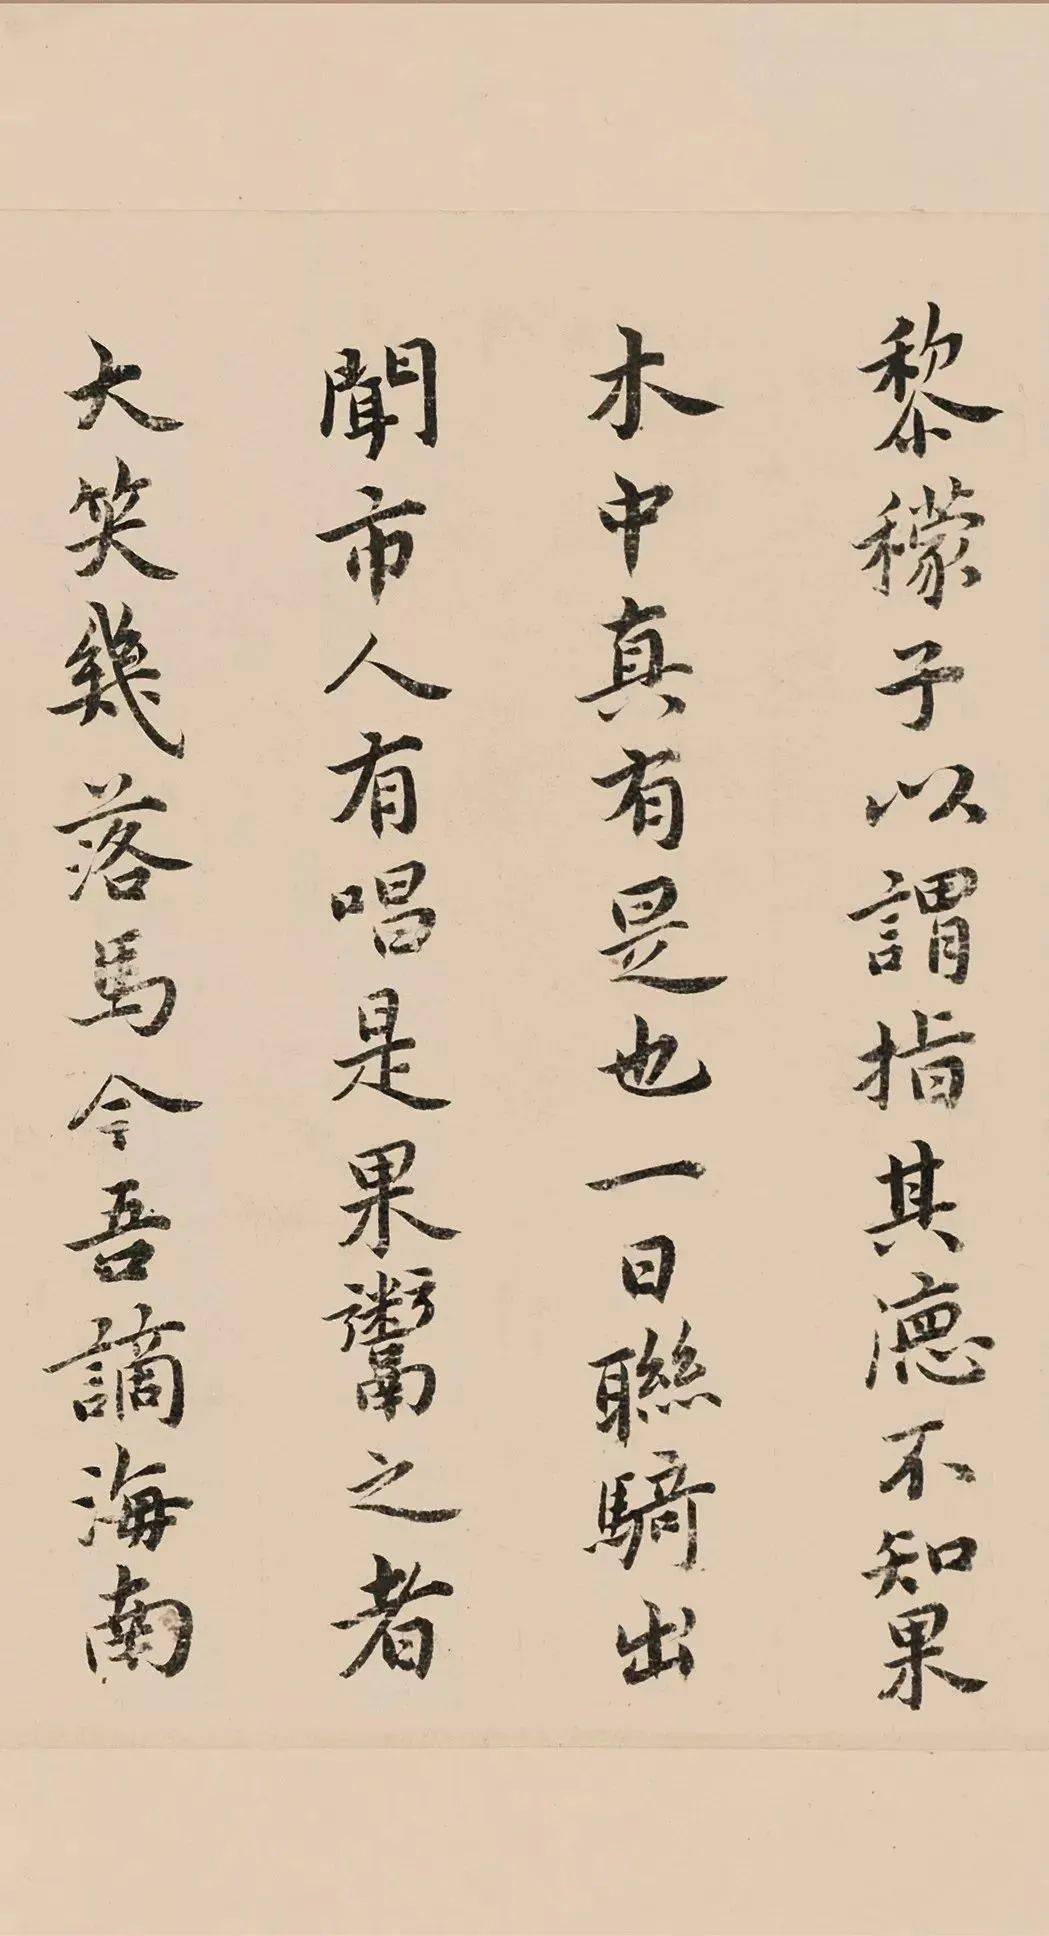 黎穬子以謂指其德不知果
木中真有是也一日聯騎出
聞市人有唱是果鬻之者
大笑幾落馬今吾謫海南